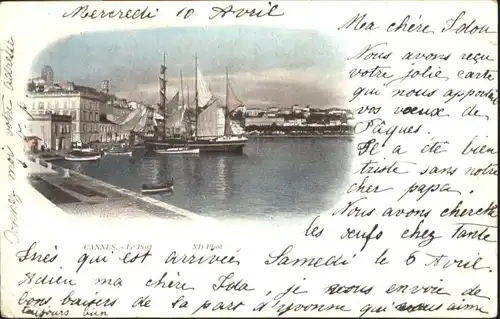 Mercredi 10 Avril
Ma chère Idou
Nous avons reçu
votre jolie carte
qui nous apporte
vos vœux de
Pâques.
Il a été bien
triste sans notre
cher papa.
Nous avons cherché
les œufs chez tante
Inès qui est arrivée Samedi le 6 Avril.
Adieu ma chère Ida, je nous envoie de
bons baisers de la part d'Yvonne qui nous aime
toujours bien
Donnez moi votre adresse
CANNES. - Le Port
ND Phot